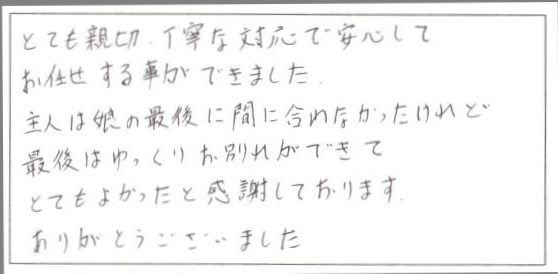 とても親切、丁寧な対応で安心して
お任せする事ができました.
主人は娘の最後に間に合わなかったけれど
最後はゆっくりお別れができて
とてもよかったと感謝しております.
ありがとうございました